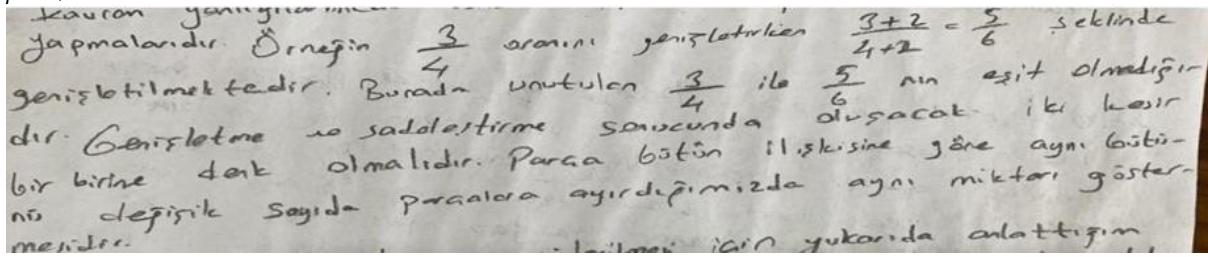 kavram yanılgıları
yapmalarıdır. Örneğin 3/4 oranını genişletirken 3+2/4+2 = 5/6 şeklinde
genişletilmektedir. Burada unutulan 3/4 ile 5/6 nın eşit olmadığın-
dır. Genişletme ve sadeleştirme sonucunda oluşacak iki kesir
bir birine denk olmalıdır. Parça bütün ilişkisine göre aynı bütü-
nü değişik sayıda parçalara ayırdığımızda aynı miktarı göster-
mesidir.
için yukarıda anlattığım